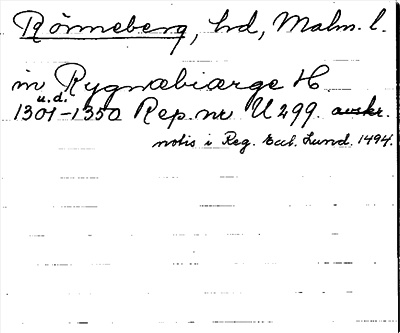 Rönneberg, hd, Malm. l.
in Rygnæbiærge H
u.d.
1301-1350 Rep. nr U 299. avskr.
notis i Reg. Eccl. Lund. 1494.